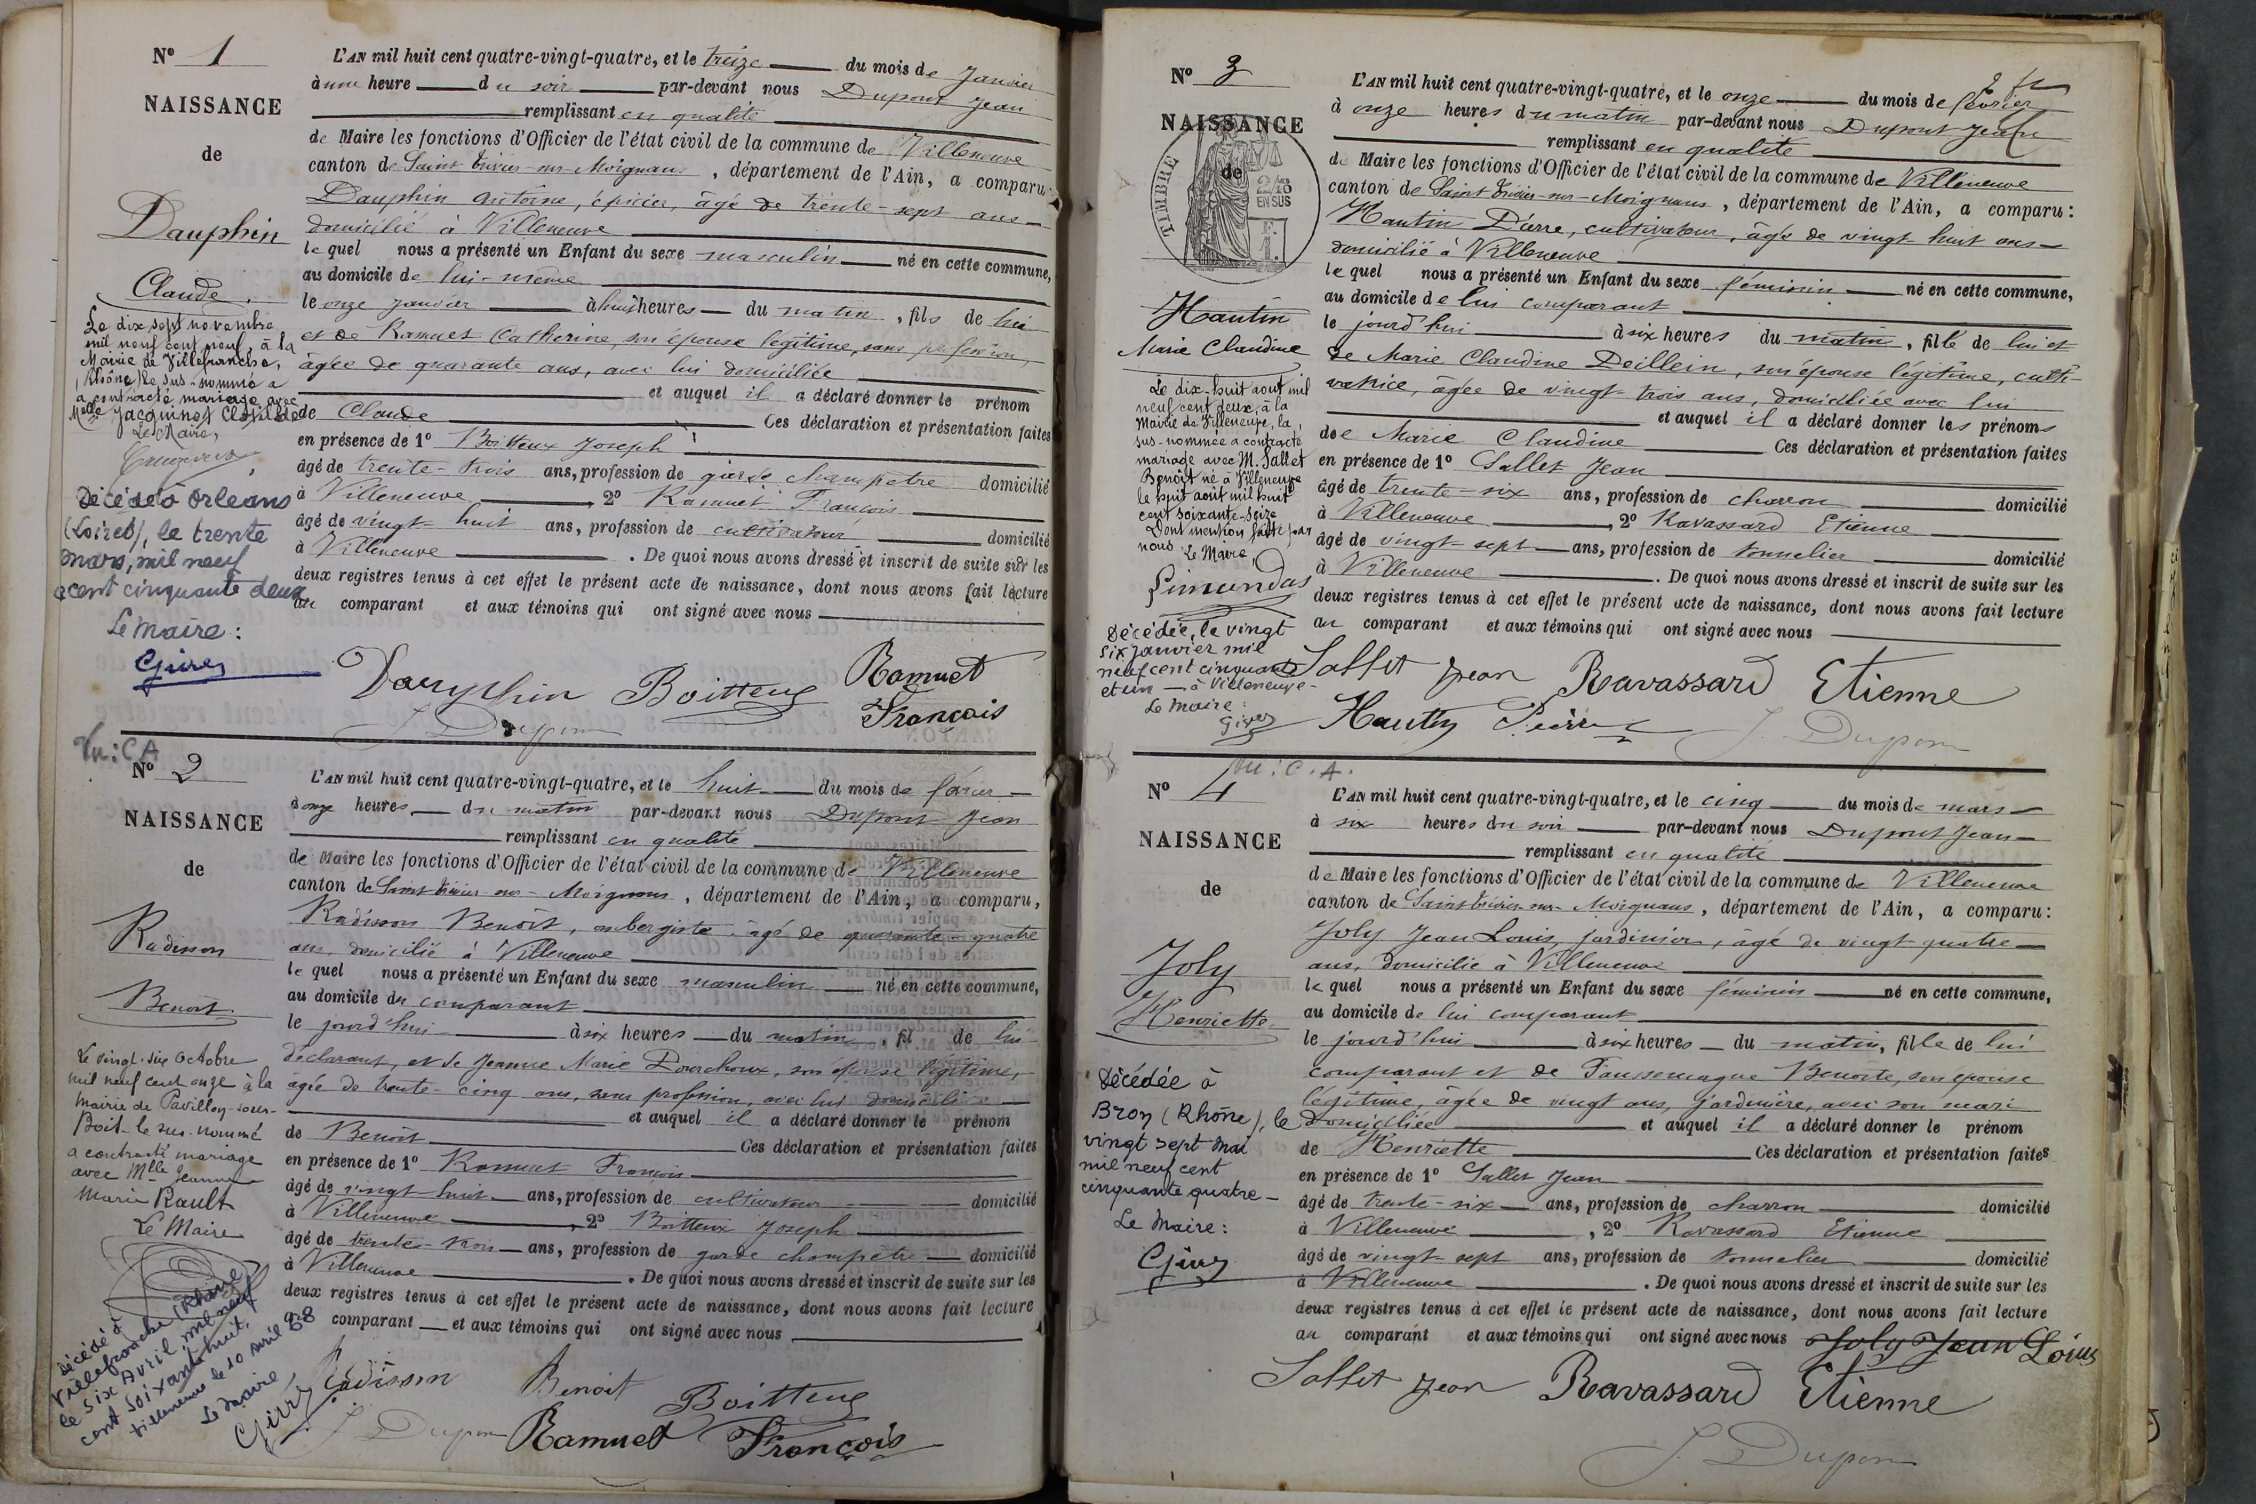 N° 1
NAISSANCE
de
Dauphin
Claude
Le dix sept novembre
mil neuf cent neuf, à la
Mairie de Villefranche,
(Rhône) le sus-nommé a
a contracté mariage avec
Melle Jacquinot Clotilde
Le Maire,
Décédé à Orléans
(Loiret), le trente
mars, mil neuf
cent cinquante deux
Le Maire :
L'AN mil huit cent quatre-vingt-quatre, et le treize du mois de Janvier
à une heure du soir par-devant nous Dupont Jean
remplissant en qualité
de Maire les fonctions d'Officier de l'état civil de la commune de Villeneuve
canton de Saint Trivier-sur-Moignans, département de l'Ain, a comparu
Dauphin Antoine, épicier, âgé de trente-sept ans
domicilié à Villeneuve
lequel nous a présenté un Enfant du sexe masculin né en cette commune,
au domicile de lui-même
le onze janvier à huit heures du matin, fils de lui
et de Ramuet Catherine, son épouse légitime, sans profession,
âgée de quarante ans, avec lui domiciliée
et auquel il a déclaré donner le prénom
de Claude Ces déclaration et présentation faites
en présence de 1° Boitteux Joseph
âgé de trente-trois ans, profession de garde champêtre domicilié
à Villeneuve, 2° Ramuet François
âgé de vingt-huit ans, profession de cultivateur domicilié
à Villeneuve. De quoi nous avons dressé et inscrit de suite sur les
deux registres tenus à cet effet le présent acte de naissance, dont nous avons fait lecture
au comparant et aux témoins qui ont signé avec nous
Dauphin Boitteux Ramuet
François
J. Dupont
Vu : C A
N° 2
NAISSANCE
de
Radisson
Benoît
Le vingt-six Octobre
mil neuf cent onze à la
Mairie de Pavillon-sous-
Bois le sus-nommé
a contracté mariage
avec Mlle Jeanne
Marie Rault
Le Maire
Décédé à
Villefranche (Rhône)
le six Avril mil neuf
cent soixante huit.
Villeneuve le 10 avril 68
Le Maire
L'AN mil huit cent quatre-vingt-quatre, et le huit du mois de février
à onze heures du matin par-devant nous Dupont Jean
remplissant en qualité
de Maire les fonctions d'Officier de l'état civil de la commune de Villeneuve
canton de Saint Trivier-sur-Moignans, département de l'Ain, a comparu,
Radisson Benoît, aubergiste, âgé de quarante-quatre
ans, domicilié à Villeneuve
lequel nous a présenté un Enfant du sexe masculin né en cette commune,
au domicile du comparant
le jourd'hui à six heures du matin, fil de lui
déclarant, et de Jeanne Marie Dourchoux, son épouse légitime,
âgée de trente-cinq ans, sans profession, avec lui domiciliée
et auquel il a déclaré donner le prénom
de Benoît Ces déclaration et présentation faites
en présence de 1° Ramuet François
âgé de vingt huit ans, profession de cultivateur domicilié
à Villeneuve, 2° Boitteux Joseph
âgé de trente-trois ans, profession de garde champêtre domicilié
à Villeneuve. De quoi nous avons dressé et inscrit de suite sur les
deux registres tenus à cet effet le présent acte de naissance, dont nous avons fait lecture
au comparant et aux témoins qui ont signé avec nous
Radisson Benoit Boitteux
J. Dupont Ramuet François
N° 3
NAISSANCE
de
TIMBRE
2/10 EN SUS
Hautin
Marie Claudine
Le dix-huit aout mil
neuf cent deux, à la
Mairie de Villeneuve, la
sus-nommée a contracté
mariage avec M. Sallet
Benoît né à Villeneuve
le huit août mil huit
cent soixante-seize
Dont mention faite par
nous Le Maire
Limandas
Décédée, le vingt
six janvier mil
neuf cent cinquante
et un à Villeneuve-
Le Maire :
L'AN mil huit cent quatre-vingt-quatre, et le onze du mois de février
à onze heures du matin par-devant nous Dupont Jean
remplissant en qualité
de Maire les fonctions d'Officier de l'état civil de la commune de Villeneuve
canton de Saint Trivier-sur-Moignans, département de l'Ain, a comparu :
Hautin Pierre, cultivateur, âgé de vingt-huit ans
domicilié à Villeneuve
lequel nous a présenté un Enfant du sexe féminin né en cette commune,
au domicile de lui comparant
le jourd'hui à six heures du matin, fille de lui et
de Marie Claudine Deillein, son épouse légitime, culti-
vatrice, âgée de vingt-trois ans, domiciliée avec lui
et auquel il a déclaré donner les prénoms
de Marie Claudine Ces déclaration et présentation faites
en présence de 1° Sallet Jean
âgé de trente-six ans, profession de charron domicilié
à Villeneuve, 2° Ravassard Etienne
âgé de vingt-sept ans, profession de tonnelier domicilié
à Villeneuve. De quoi nous avons dressé et inscrit de suite sur les
deux registres tenus à cet effet le présent acte de naissance, dont nous avons fait lecture
au comparant et aux témoins qui ont signé avec nous
Sallet Jean Ravassard Etienne
Hautin Pierre J. Dupont
Vu : C. A.
N° 4
NAISSANCE
de
Joly
Henriette
Décédée à
Bron (Rhône), le
vingt sept Mai
mil neuf cent
cinquante quatre-
Le Maire :
L'AN mil huit cent quatre-vingt-quatre, et le cinq du mois de mars
à six heures du soir par-devant nous Dupont Jean
remplissant en qualité
de Maire les fonctions d'Officier de l'état civil de la commune de Villeneuve
canton de Saint Trivier-sur-Moignans, département de l'Ain, a comparu :
Joly Jean Louis, jardinier, âgé de vingt-quatre
ans, domicilié à Villeneuve
lequel nous a présenté un Enfant du sexe féminin né en cette commune,
au domicile de lui comparant
le jourd'hui à six heures du matin, fille de lui
comparant et de Faussemagne Benoite, son épouse
légitime, âgée de vingt ans, jardinière, avec son mari
domiciliée et auquel il a déclaré donner le prénom
de Henriette Ces déclaration et présentation faites
en présence de 1° Sallet Jean
âgé de trente-six ans, profession de charron domicilié
à Villeneuve, 2° Ravassard Etienne
âgé de vingt-sept ans, profession de tonnelier domicilié
à Villeneuve. De quoi nous avons dressé et inscrit de suite sur les
deux registres tenus à cet effet le présent acte de naissance, dont nous avons fait lecture
au comparant et aux témoins qui ont signé avec nous Joly Jean Loius
Sallet Jean Ravassard Etienne
J. Dupont